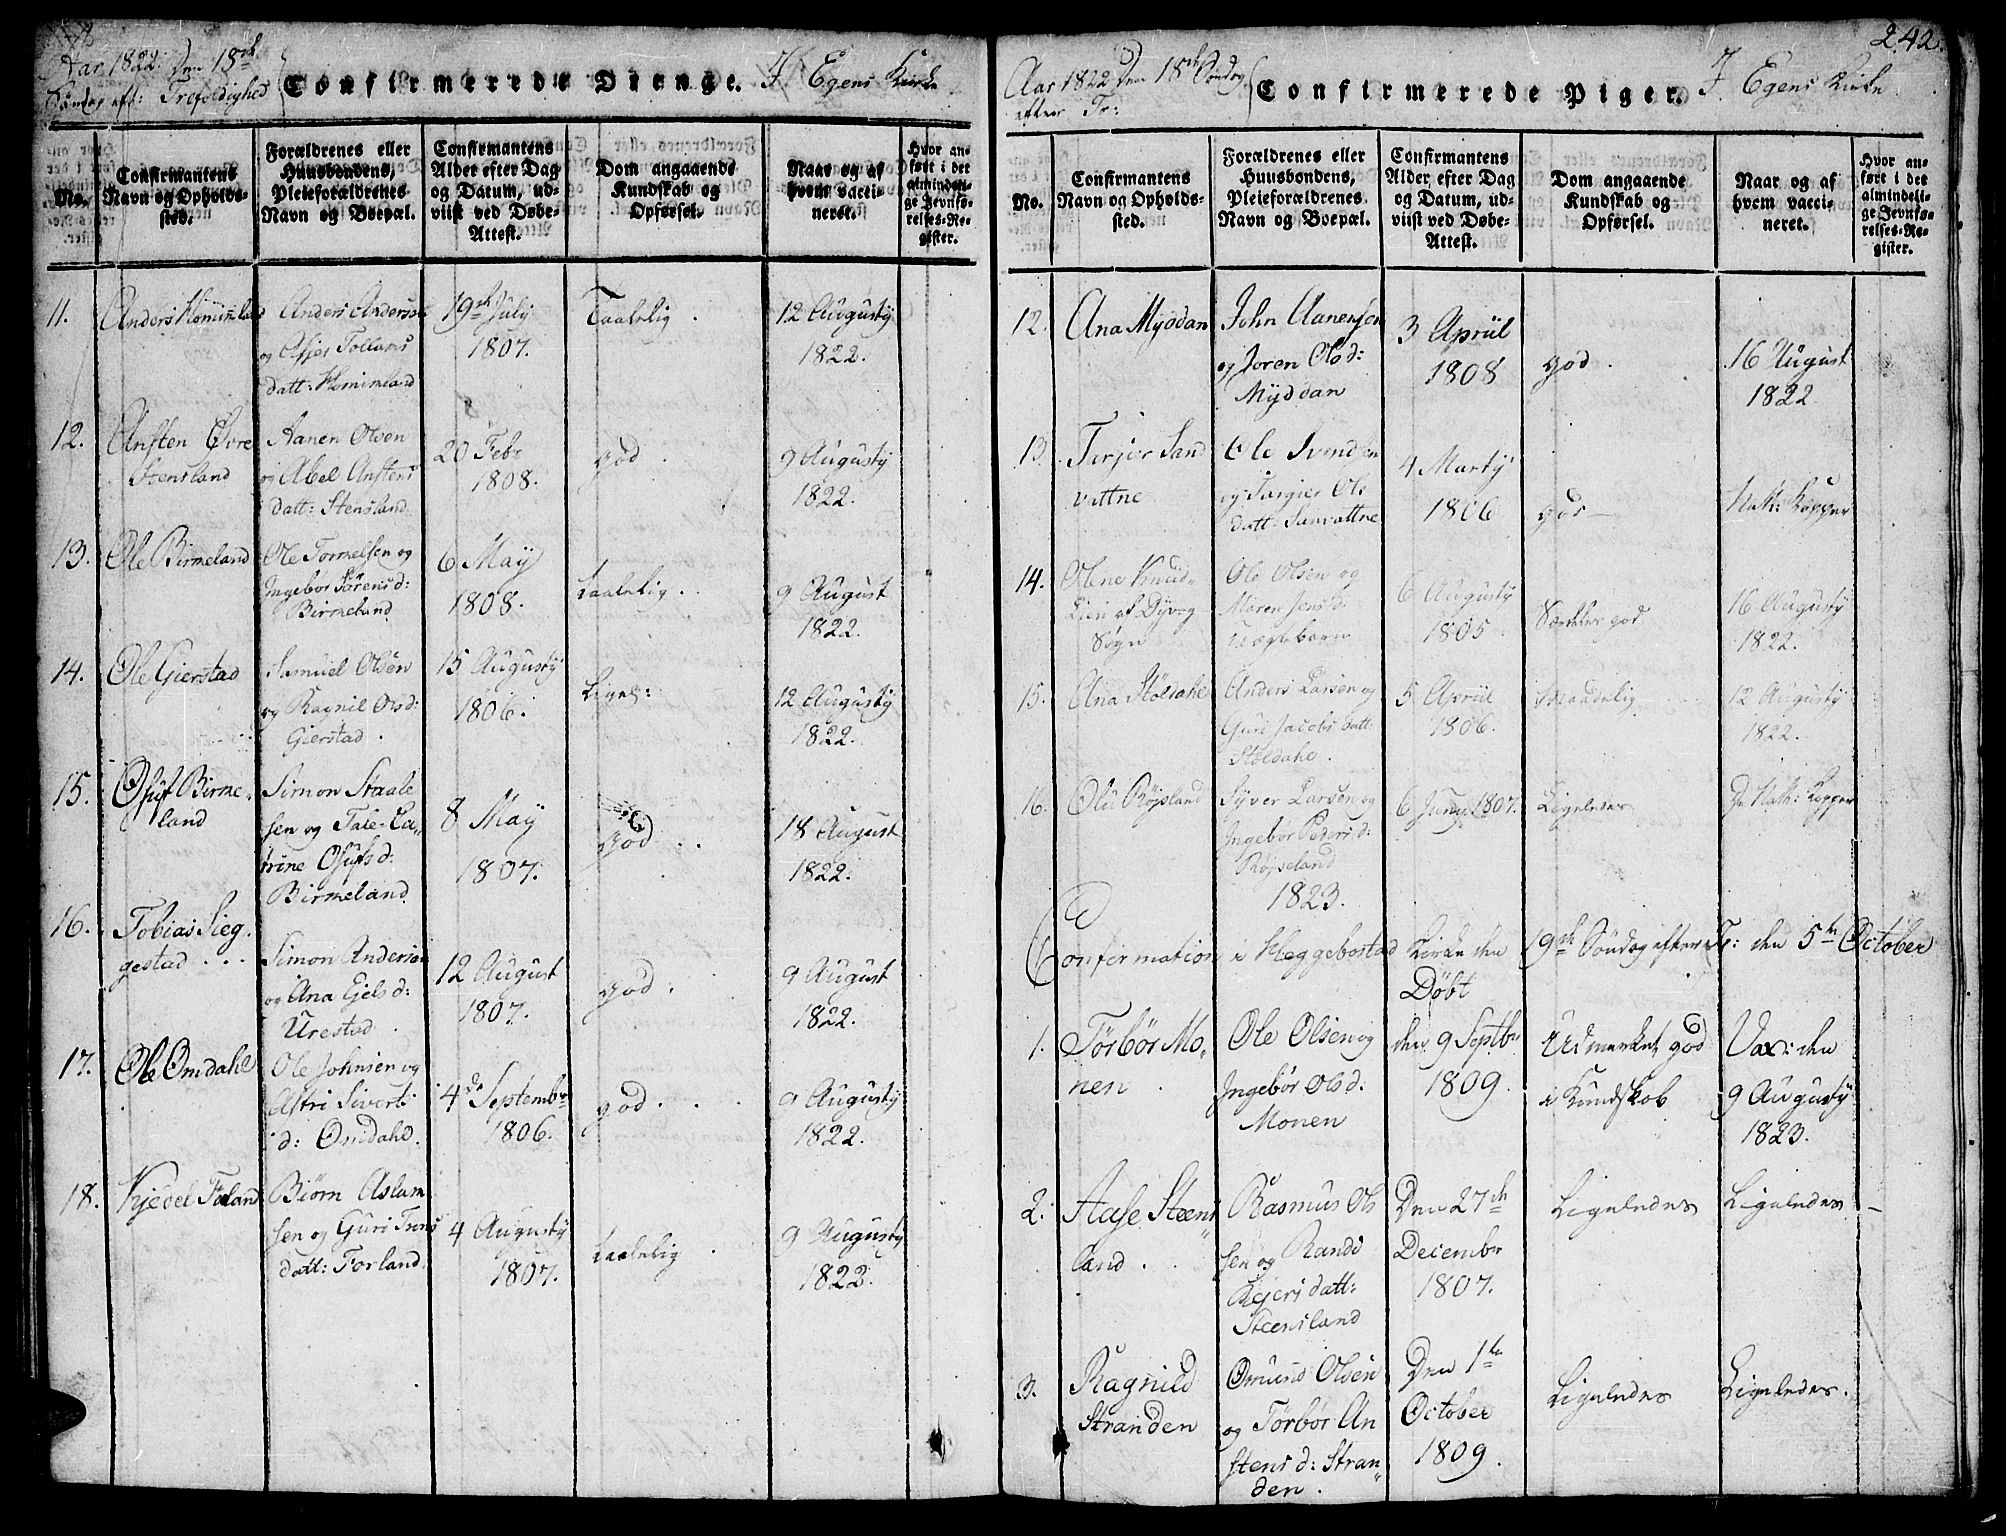 Aar 1822 den 18de
Søndag eft: Trefoldighed
Confirmerede Drenge. I Egens Kirke
No.
Confirmantens
Navn og Opholds-
sted.
Forældrenes eller
Huusbondens,
Pleieforældrenes
Navn og Boepæl.
Confirmantens
Alder efter Dag
og Datum, ud-
viist ved Døbe-
Attest.
Dom angaaende
Kundskab og
Opførsel.
Naar og af
hvem vacci-
neret.
Hvor an-
ført i det
almindeli-
ge Jevnfø-
relses-Re-
gister.
11.
Anders Homimland
Anders Anders
og Asjer Tollams
datt: Homimland
19de July
1807.
Taalelig.
12 Augusty
1822.
12.
Ansten Øvre
Stensland
Aanen Olsen
og Abel Anstens
datt: Stensland
20 Febr
1808.
god.
9 Augusty
1822.
13.
Ole Birmeland
Ole Tormelsen og
Ingebor Sørens d:
Birmeland
6 May
1808.
taalelig.
9 August
1822.
14.
Ole Gierstad
Samuel Olsen
og Ragnil Ols d:
Gierstad.
15 Augusty
1806.
Ligel:
12 Augusty
1822.
15.
Osuf Birme-
land
Simon Staale
sen og Tale Ca-
trine Osufs d:
Birmeland
8 May
1807.
god
18 August
1822.
16.
Tobias Sieg-
gestad
Simon Anderse
og Ana Ejels d:
Urestad
12 August
1807.
god.
9 August
1822.
17.
Ole Omdahl
Ole Johnsen og
Astri Siverts
d: Omdahl.
4de Septembr
1806.
god.
9 Augusty
1822.
18.
Kjedel Foland
Biørn Aslam
sen og Guri Trons
datt: Forland.
4 Augusty
1807.
taalelig
9 Augusty
1822.
242.
Aar 1822 den 18de Søndag
efter Tr:
Confirmerede Piger. I Egens Kirke
No.
Confirmantens
Navn og Opholds-
sted.
Forældrenes eller
Huusbondens,
Pleieforældrenes
Navn og Boepæl.
Confirmantens
Alder efter Dag
og Datum, ud-
viist ved Døbe-
Attest.
Dom angaaende
Kundskab og
Opførsel.
Naar og af
hvem vacci-
neret.
Hvor an-
ført i det
almindeli-
ge Jevnfø-
relses-Re-
gister.
12.
Ana Mysdan
John Aanensen
og Joren Ols d:
Myddan
3 Apriil
1808
god.
16 August
1822
13.
Terjer Sand
vattne
Ole Svendsen
og Targier Ols
datt. Sanvattne
4 Marty
1806
god
Nat: Kopper
14.
Olene Knud-
Lien af Dyvog
Sogn
Ole Olsen og
Maren Jens d:
Uægtebarn
6 Augusty
1805
Særdeles god
16 Augusty
1822.
15.
Ana Støldahl
Anders Larsen og
Guri Jacobs datt:
Støldahl.
5 Apriil
1806.
Maadelig
12 Augusty
1822.
16.
Oli Røjsland
Syver Larsen og
Ingebor Peders d:
Røjseland
6 Juny 1807.
Ligeledes
De Nath: Kopper
1823.
Confirmation i Heggebostad Kirke den 19de Søndag efter Tr: den 5te October
Døbt
1.
Tørbør Mo-
nen
Ole Olsen og
Ingebør Ols d.
Monen
den 9 Septbr
1809.
Udmerket god
i Kundskob
Vax: den
9 Augusty
1823.
2.
Aase Steens
land.
Rasmus Ols
sen og Randi
Kejers datt:
Steensland
Den 27de
December
1807.
Ligeledes
Ligeledes
3.
Ragnild
Stranden
Omund Olsen
og Tørbør An
stens d: Stran-
den.
Den 1te
October
1809.
Ligeledes
Ligeledes.